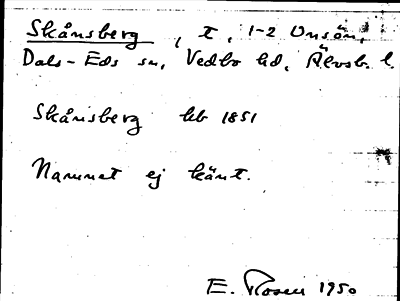 Skånsberg, t, 1-2 Onsön,
Dals-Eds sn, Vedbo hd, Älvsb. l.
Skånsberg hb 1851
Namnet ej känt.
E. Rosen 1950